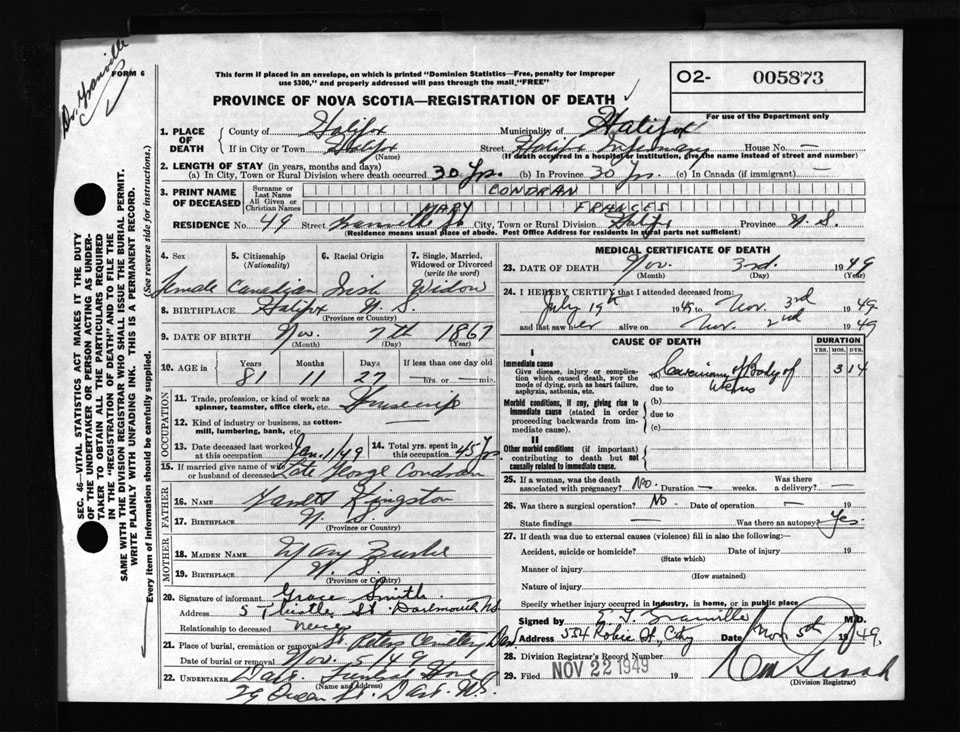 Dr. Granville
FORM 6
This form if placed in an envelope, on which is printed "Dominion Statistics—Free, penalty for improper
use $300," and properly addressed will pass through the mail "FREE"
PROVINCE OF NOVA SCOTIA—REGISTRATION OF DEATH
O2- 005873
For use of the Department only
1. PLACE OF DEATH
County of Halifax Municipality of Halifax
If in City or Town Halifax (Name) Street Halifax Infirmary House No. —
(If death occurred in a hospital or institution, give the name instead of street and number)
2. LENGTH OF STAY (in years, months and days)
(a) In City, Town or Rural Division where death occurred 30 Yrs. (b) In Province 30 Yrs. (c) In Canada (if immigrant) —
3. PRINT NAME OF DECEASED
Surname or Last Name CONDRAN
All Given or Christian Names MARY FRANCES
RESIDENCE No. 49 Street Granville St City, Town or Rural Division Halifax Province N.S.
(Residence means usual place of abode. Post Office Address for residents in rural parts not sufficient)
4. Sex 5. Citizenship (Nationality) 6. Racial Origin 7. Single, Married, Widowed or Divorced (write the word)
Female Canadian Irish Widow
8. BIRTHPLACE Halifax N.S. (Province or Country)
9. DATE OF BIRTH Nov. (Month) 7th (Day) 1867 (Year)
10. AGE in Years 81 Months 11 Days 27 If less than one day old — hrs. or — min.
OCCUPATION
11. Trade, profession, or kind of work as spinner, teamster, office clerk, etc. Housewife
12. Kind of industry or business, as cotton-mill, lumbering, bank, etc. —
13. Date deceased last worked at this occupation Jan. 1/49 14. Total yrs. spent in this occupation 45 Yrs
15. If married give name of wife or husband of deceased Late George Condran
FATHER
16. NAME Kingston
17. BIRTHPLACE N.S. (Province or Country)
MOTHER
18. MAIDEN NAME Mary
19. BIRTHPLACE N.S. (Province or Country)
20. Signature of informant Grace Smith
Address 5 Thistle St. Dartmouth NS
Relationship to deceased Niece
21. Place of burial, cremation or removal St. Peters Cemetery Dart
Date of burial or removal Nov. 5/49
22. UNDERTAKER Dart. Funeral Home
(Name and address)
79 Queen St. Dart. N.S.
MEDICAL CERTIFICATE OF DEATH
23. DATE OF DEATH Nov. (Month) 3rd. (Day) 1949 (Year)
24. I HEREBY CERTIFY that I attended deceased from
July 19th 1949 to Nov. 3rd 1949
and last saw her alive on Nov. 2nd 1949
CAUSE OF DEATH DURATION
YRS. MOS. DYS.
I
Immediate cause
Give disease, injury or complication which caused death, not the mode of dying, such as heart failure, asphyxia, asthenia, etc.
(a) Carcinoma of Body of Uterus 3 14
due to
Morbid conditions, if any, giving rise to immediate cause (stated in order proceeding backwards from immediate cause).
(b)
due to
(c)
II
Other morbid conditions (if important) contributing to death but not causally related to immediate cause.
25. If a woman, was the death associated with pregnancy? No. Duration — weeks. Was there a delivery? —
26. Was there a surgical operation? No Date of operation — 19
State findings — Was there an autopsy? Yes.
27. If death was due to external causes (violence) fill in also the following:
Accident, suicide or homicide? (State which) Date of injury 19
Manner of injury (How sustained)
Nature of injury
Specify whether injury occurred in industry, in home, or in public place
Signed by E. F. Granville M.D.
Address 554 Robie St. City Date Nov 5th 1949.
28. Division Registrar's Record Number
29. Filed NOV 22 1949 19
(Division Registrar)
SEC. 46—VITAL STATISTICS ACT MAKES IT THE DUTY
OF THE UNDERTAKER OR PERSON ACTING AS UNDER-
TAKER TO OBTAIN ALL THE PARTICULARS REQUIRED
IN THE "REGISTRATION OF DEATH" AND TO FILE THE
SAME WITH THE DIVISION REGISTRAR WHO SHALL ISSUE THE BURIAL PERMIT.
WRITE PLAINLY WITH UNFADING INK. THIS IS A PERMANENT RECORD.
Every item of information should be carefully supplied. (See reverse side for instructions.)